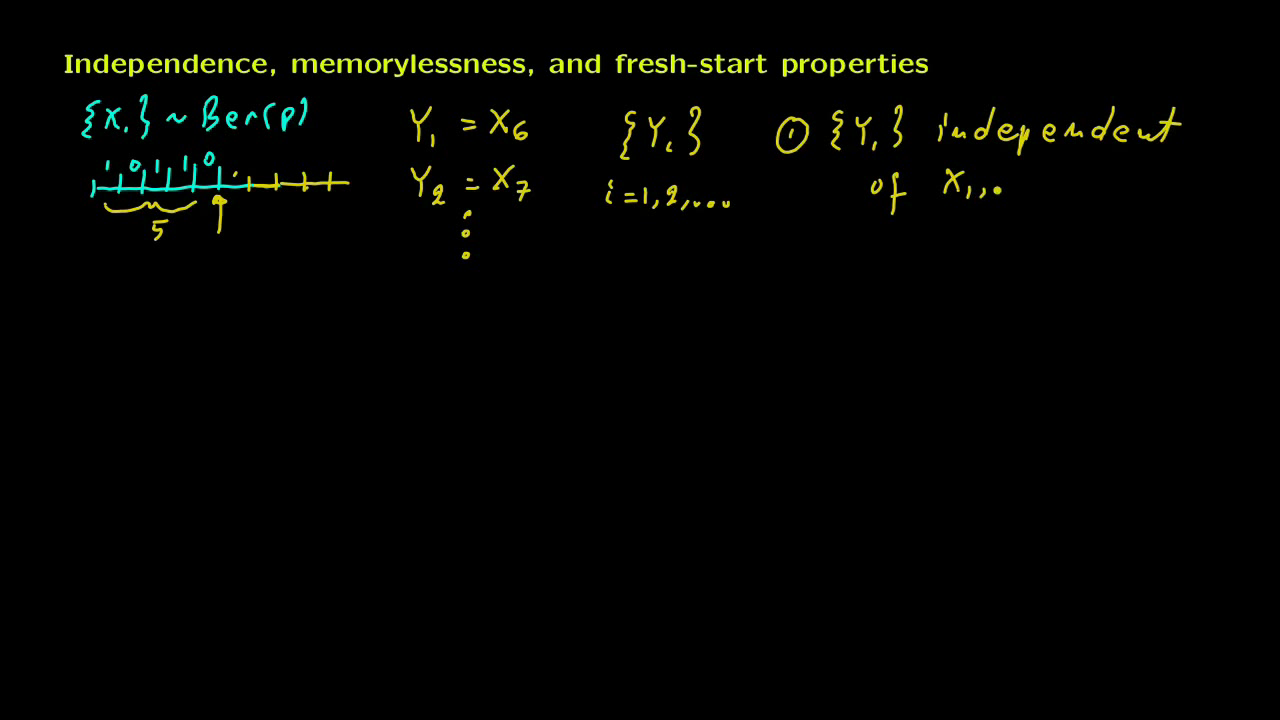 Independence, memorylessness, and fresh-start properties
{X_i} ~ Ber(p)
1 0 1 1 0
5
Y_1 = X_6
Y_2 = X_7
⋮
{Y_i}
i = 1, 2, ...
① {Y_i} independent
of X_1, .